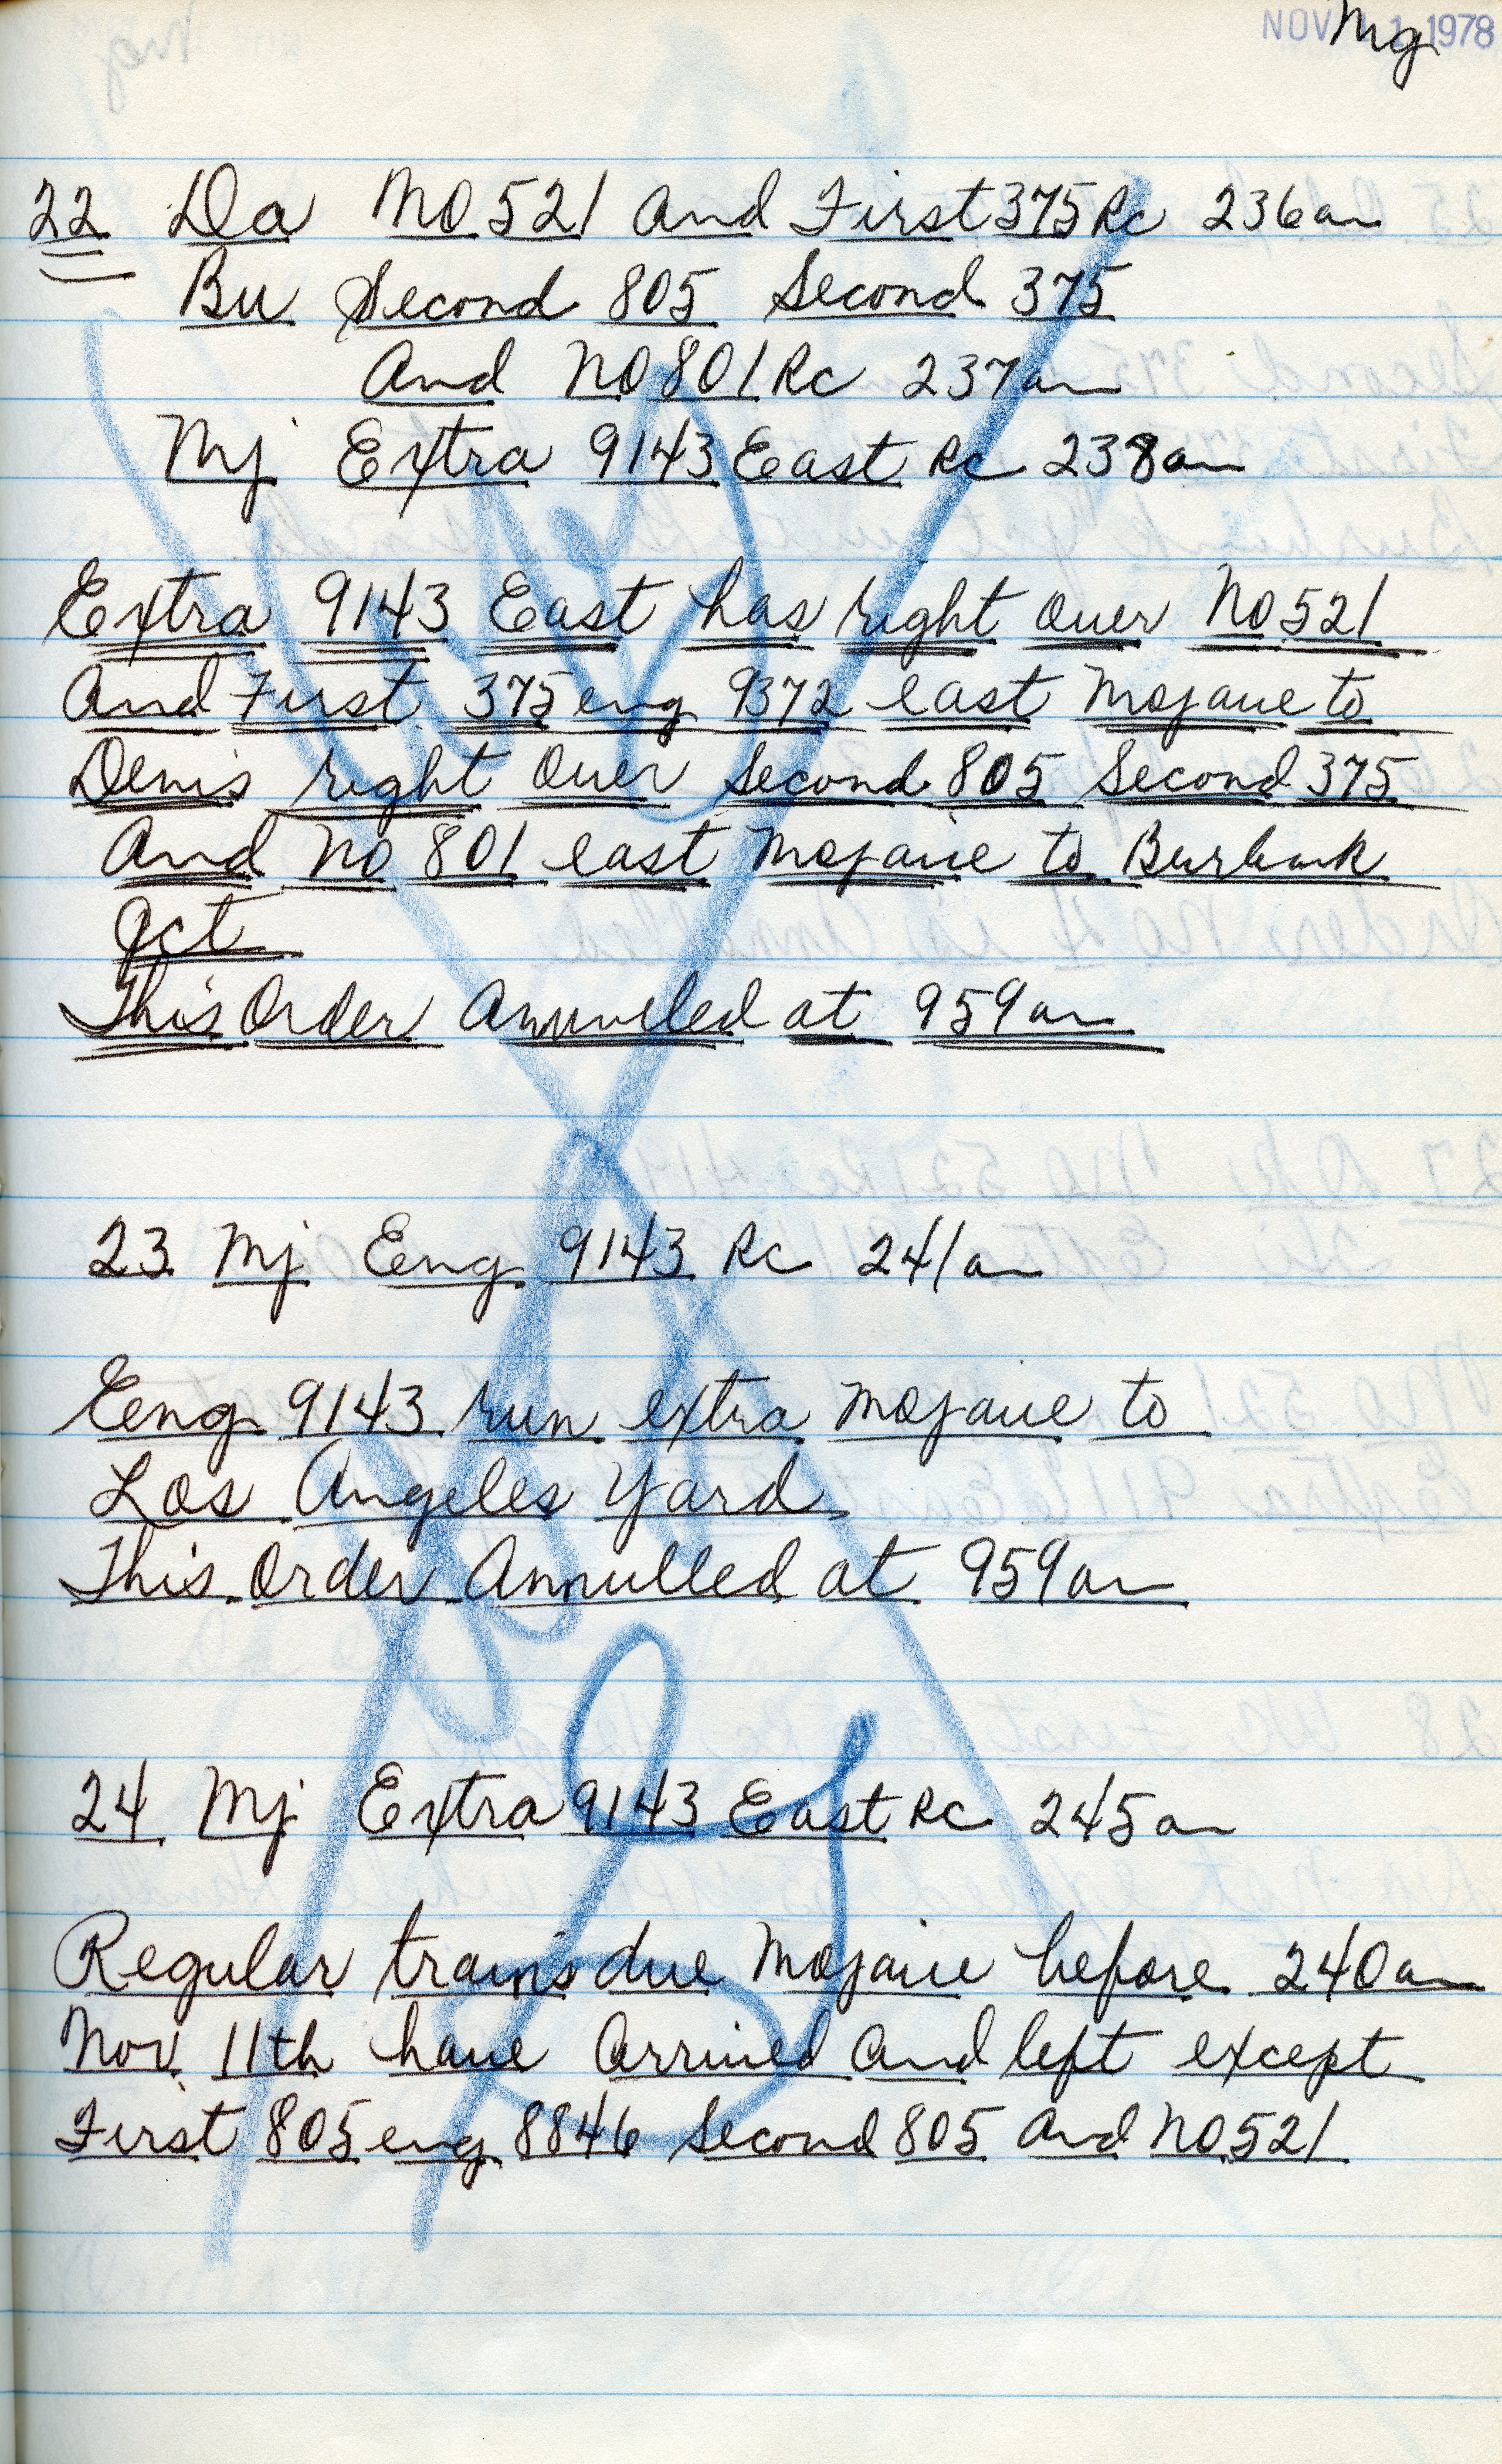 NOV 11 1978
Mg
22 Da No 521 And First 375 Rc 236am
Bu Second 805 Second 375
And No 801 Rc 237am
Mj Extra 9143 East Rc 238am
Extra 9143 East has right over No 521
And First 375 eng 9372 east Mojave to
Denis right Over Second 805 Second 375
And No 801 east Mojave to Burbank
Jct
This Order Annuled at 959am
23 Mj Eng 9143 Rc 241am
Eng 9143 run extra Mojave to
Los Angeles Yard
This Order Annulled at 959am
24 Mj Extra 9143 East Rc 245am
Regular trains due Mojave before 240am
Nov. 11th have Arrived And left except
First 805 eng 8846 Second 805 And No 521